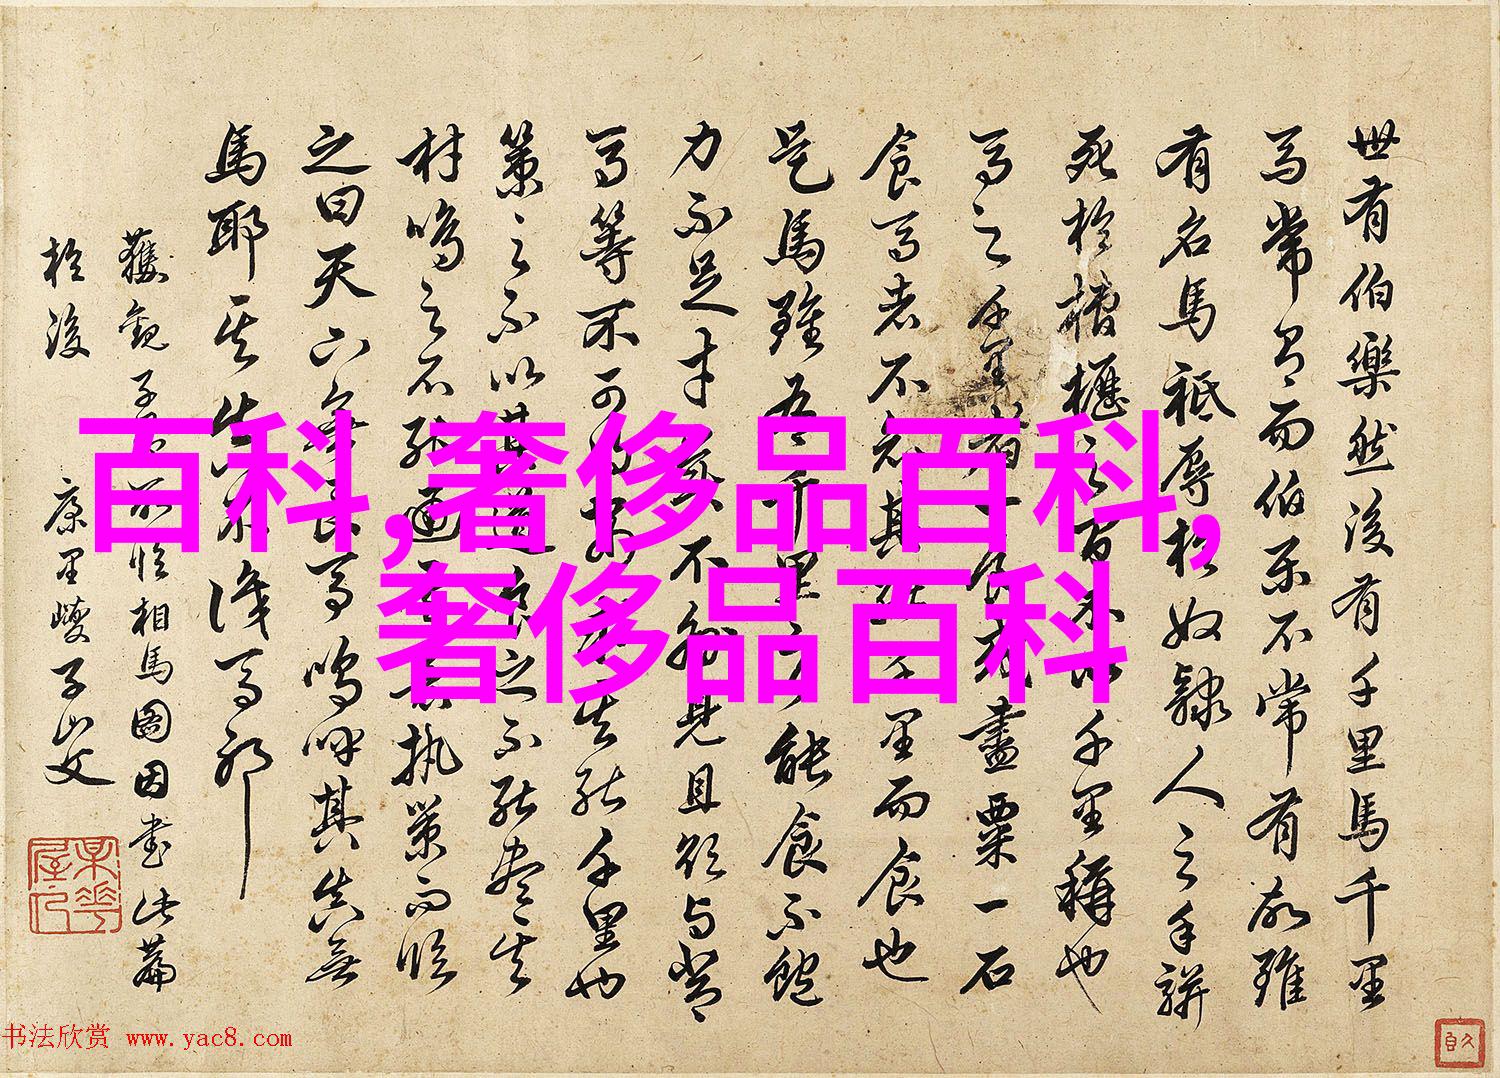 世有伯樂然後有千里馬千里
馬常有而伯樂不常有故雖
有名馬祗辱於奴隸人之手駢
死於槽櫪之不以千里稱也
馬之千里者一食或盡粟一石
食馬者不知其能千里而食也
是馬雖有千里之能食不飽
力不足才美不外見且欲與常
馬等不可得安求其能千里也
策之不以其道食之不能盡其
材鳴之不能通其意執策而臨
之曰天下無良馬嗚呼其真無
馬耶其真不識馬耶
獲觀子所臨相馬圖因書此篇
於後 康里巎子山父
百科,奢侈品百科,
奢侈品百科
书法欣赏 www.yac8.com